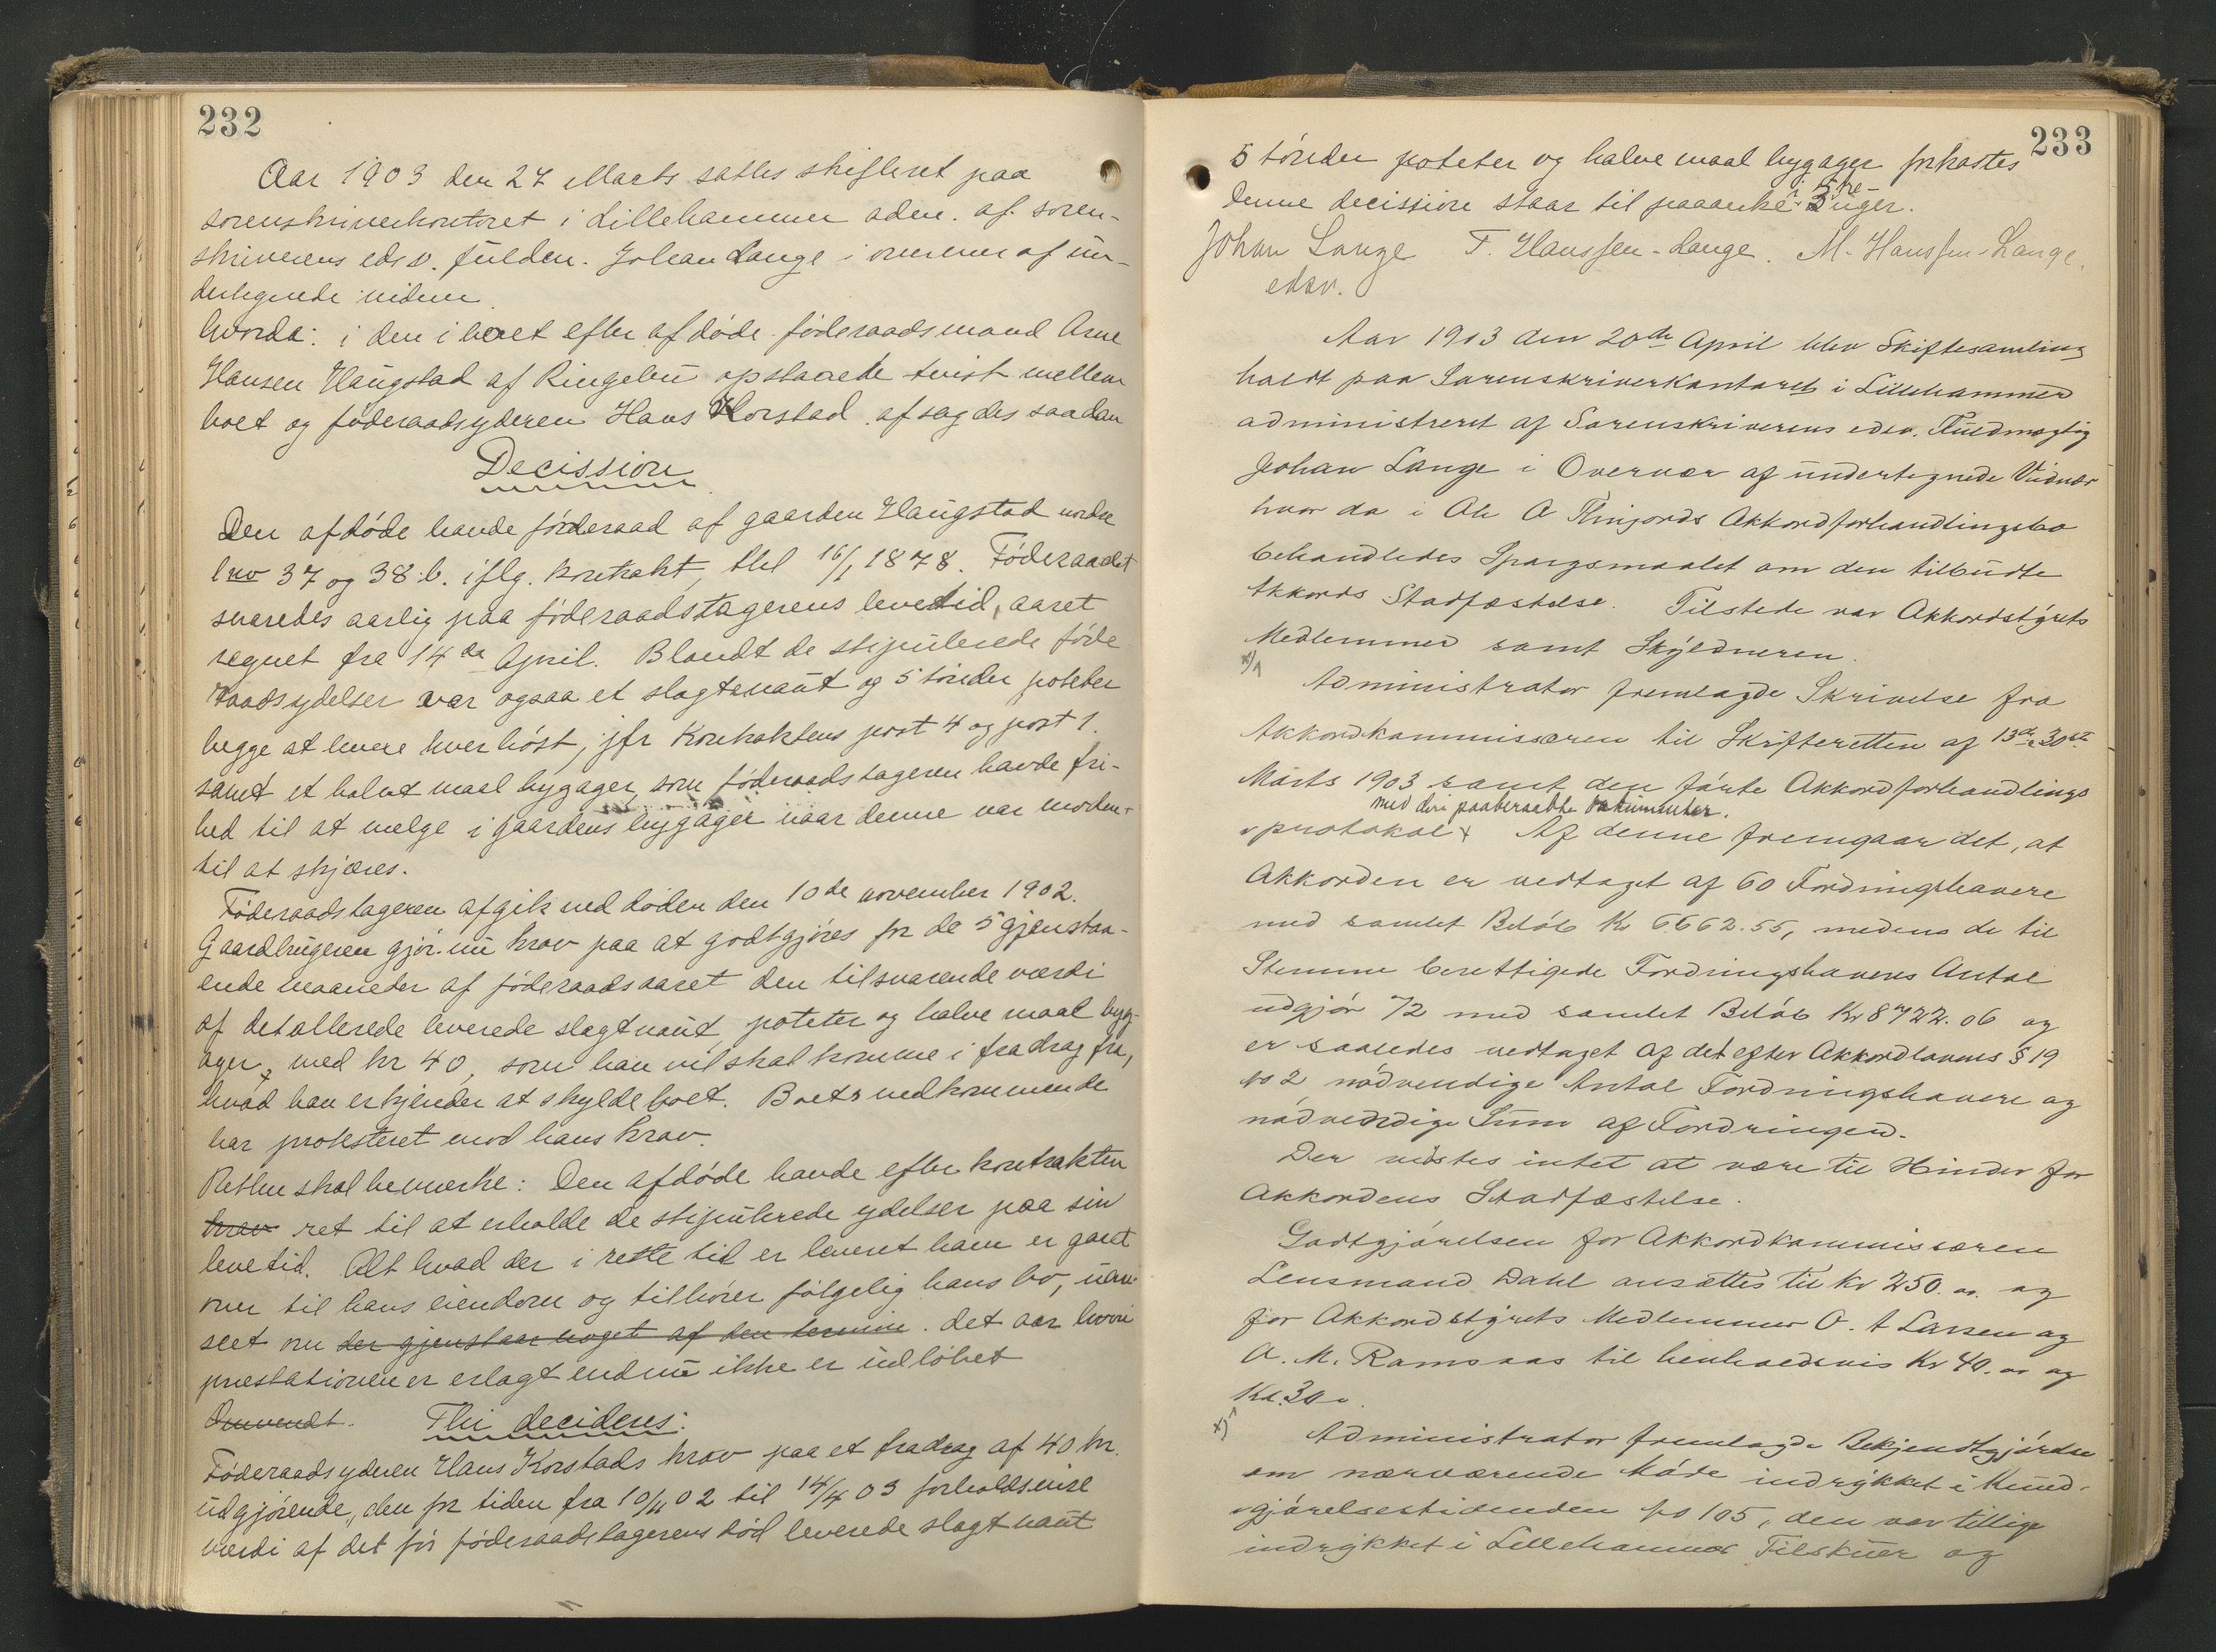 232
Aar 1903 den 27 Marts sattes skifteret paa
sorenskriverkontoret i Lillehammer adm. af soren-
skriverens edsv. fuldm. Johan Lange i overvær af un-
dertegnede vidner
hvorda: i den i boet efter afdøde føderaadsmand Arne
Hansen Haugstad af Ringebu opstaaede tvist mellem
boet og føderaadsyderen Hans Korstad afsagdes saadan
Decission
Den afdøde havde föderaad af gaarden Haugstad nordre
lno 37 og 38 b. iflg. kontrakt, thl 16/1 1878. Føderaadet
svaredes aarlig paa föderaadstagerens levetid, aaret
regnet fra 14de April. Blandt de stipulerede föde
raadsydelser var ogsaa et slagtenaut og 5 tönder poteter
begge at levere hver höst, jfr kontraktens post 4 og post 1.
samt et halvt maal bygager, som föderaadstageren havde fri-
hed til at vælge i gaardens bygager naar denne var moden
til at skjæres.
Föderaadstageren afgik ved döden den 10de november 1902.
Gaardbrugeren gjör nu krav paa at godtgjöres for de 5 gjenstaa-
ende maaneder af föderaadsaaret den tilsvarende værdi
af det allerede leverede slagtnaut, poteter og halve maal byg-
ager, med kr 40, som han vil skal komme i fradrag fra,
hvad han erkjender at skylde boet. Boets vedkommende
har protesteret mod hans krav.
Retten skal bemerke: Den afdöde havde efter kontrakten
krav ret til at erholde de stipulerede ydelser paa sin
levetid. Alt hvad der i rette tid er leveret ham er gaaet
over til hans eiendom og tilhörer fölgelig hans bo, uan-
seet om der gjenstaar noget af den termin. det aar hvori
præstationen er erlagt endnu ikke er udlöbet
Omvendt. Thi decideres:
Föderaadsyderen Hans Korstads krav paa et fradrag af 40 kr.
udgjörende, den for tiden fra 10/11 02 til 14/4 03 forholdsvise
værdi af det för föderaadstagerens död leverede slagtnaut
233
5 tönder poteter og halve maal bygager forkastes
Denne decission staar til paaanke i 3 uger.
Johan Lange F. Hanssen-Lange. M. Hanssen-Lange.
edsv.
Aar 1903 den 20de April blev Skiftesamling
holdt paa Sorenskriverkontoret i Lillehammer
administreret af Sorenskriverens edsv. Fuldmægtig
Johan Lange i Overvær af undertegnede Vidner
hvor da i Ole A Akkordforhandlingsbo
behandledes Spørgsmaalet om den tilbudte
Akkords Stadfæstelse. Tilstede var Akkordstyrets
Medlemmer samt Skyldneren.
x)
Administrator fremlagde Skrivelse fra
Akkordkommissæren til Skifteretten af 13de 30te
Marts 1903 samt den førte Akkordforhandlings
med deri paaberaabte Dokumenter.
protokol x Af denne fremgaar det, at
Akkorden er vedtaget af 60 Fordringshavere
med samlet Beløb Kr 6662.55, medens de til
Stemme berettigede Fordringshaveres Antal
udgjör 72 med samlet Belöb Kr 8722.06 og
er saaledes vedtaget af det efter Akkordlovens § 19
no 2 nödvendige Antal Fordringshavere og
nödvendige Sum af Fordringer.
Der vidstes intet at være til Hinder for
Akkordens Stadfæstelse.
Godtgjörelsen for Akkordkommissæren
Lensmand Dahl ansættes til Kr 250.00 og
for Akkordstyrets Medlemmer O. A Larsen og
A. M. Ramsaas til henholdsvis Kr 40.00 og
Kr. 30
x)
Administrator fremlagde Bekjendtgjörelse
om nærværende Möde indrykket i Kund-
gjörelsestidenden no 105, den var tillige
indrykket i Lillehammer Tilskuer og